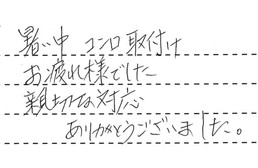 暑い中 コンロ取付け
お疲れ様でした
親切な対応
ありがとうございました。